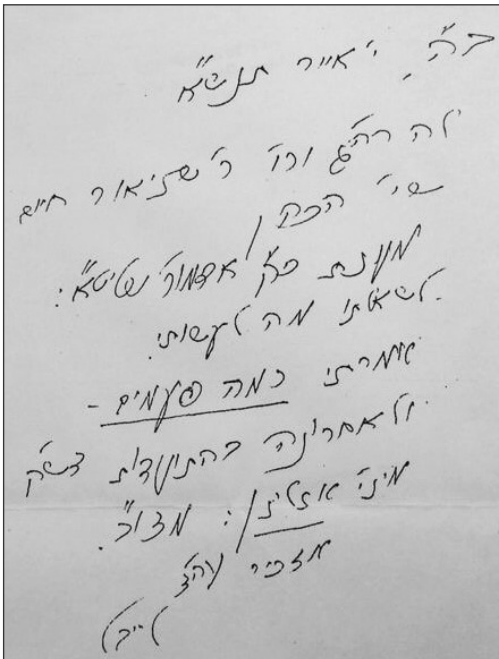 ב"ה, י' אייר תנש"א
רה"ג וכו' ר' שניאור חיים
שי'
מענת כ"ק אדמו"ר שליט"א:
לשאלתו מה לעשות.
אמרתי כמה פעמים -
ולאחרונה בהתוועדות דש"ק
מיני' : מצו"ב.
מזכיר
לייבל